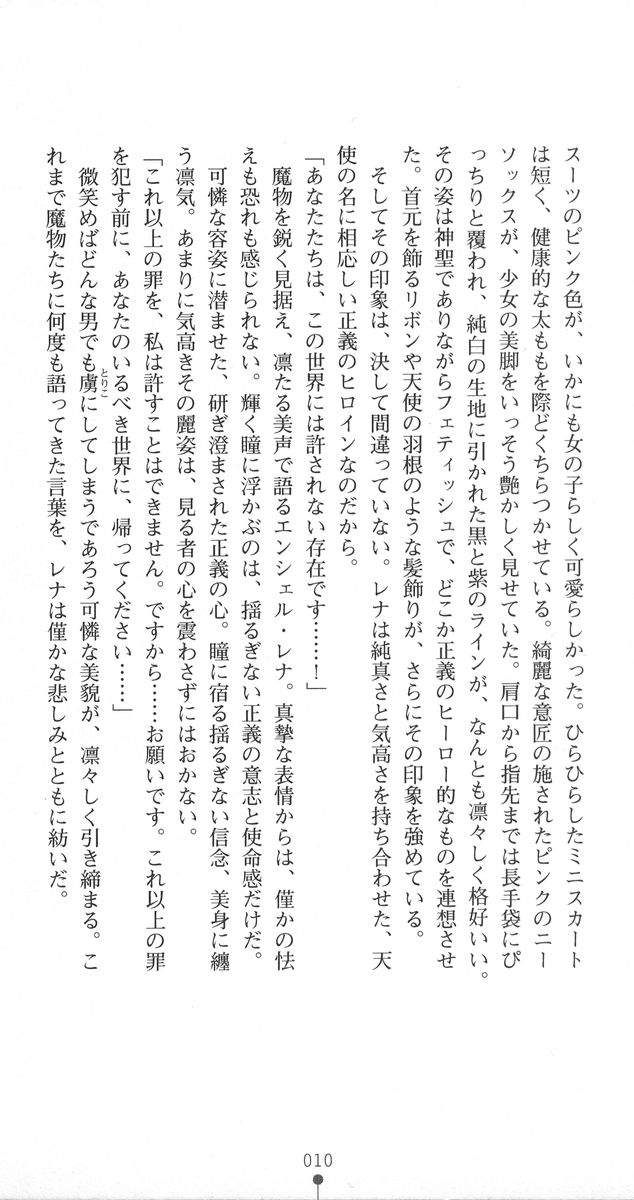 スーツのピンク色が、いかにも女の子らしく可愛らしかった。ひらひらしたミニスカート
は短く、健康的な太ももを際どくちらつかせている。綺麗な意匠の施されたピンクのニー
ソックスが、少女の美脚をいっそう艶かしく見せていた。肩口から指先までは長手袋にぴ
っちりと覆われ、純白の生地に引かれた黒と紫のラインが、なんとも凛々しく格好いい。
その姿は神聖でありながらフェティッシュで、どこか正義のヒーロー的なものを連想させ
た。首元を飾るリボンや天使の羽根のような髪飾りが、さらにその印象を強めている。
そしてその印象は、決して間違っていない。レナは純真さと気高さを持ち合わせた、天
使の名に相応しい正義のヒロインなのだから。
「あなたたちは、この世界には許されない存在です……！」
魔物を鋭く見据え、凛たる美声で語るエンシェル・レナ。真摯な表情からは、僅かの怯
えも恐れも感じられない。輝く瞳に浮かぶのは、揺るぎない正義の意志と使命感だけだ。
可憐な容姿に潜ませた、研ぎ澄まされた正義の心。瞳に宿る揺るぎない信念、美身に纏
う凛気。あまりに気高きその麗姿は、見る者の心を震わさずにはおかない。
「これ以上の罪を、私は許すことはできません。ですから……お願いです。これ以上の罪
を犯す前に、あなたのいるべき世界に、帰ってください……」
微笑めばどんな男でも虜とりこにしてしまうであろう可憐な美貌が、凛々しく引き締まる。こ
れまで魔物たちに何度も語ってきた言葉を、レナは僅かな悲しみとともに紡いだ。
010